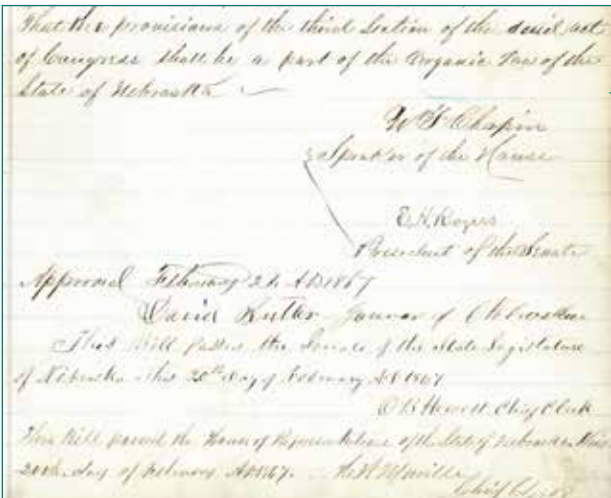 That the provisions of the third Section of the said act
of Congress shall be a part of the Organic Law of the
State of Nebraska
Chapin
Speaker of the House
E. H. Rogers
President of the Senate
Approved February AD 1867
David Butler Governor of Nebraska
This Bill passed the Senate of the State Legislature
of Nebraska this 20th day of February AD 1867
Chief Clerk
This Bill passed the House of Representatives of the State of Nebraska this
20th day of February AD 1867.
Chief Clerk